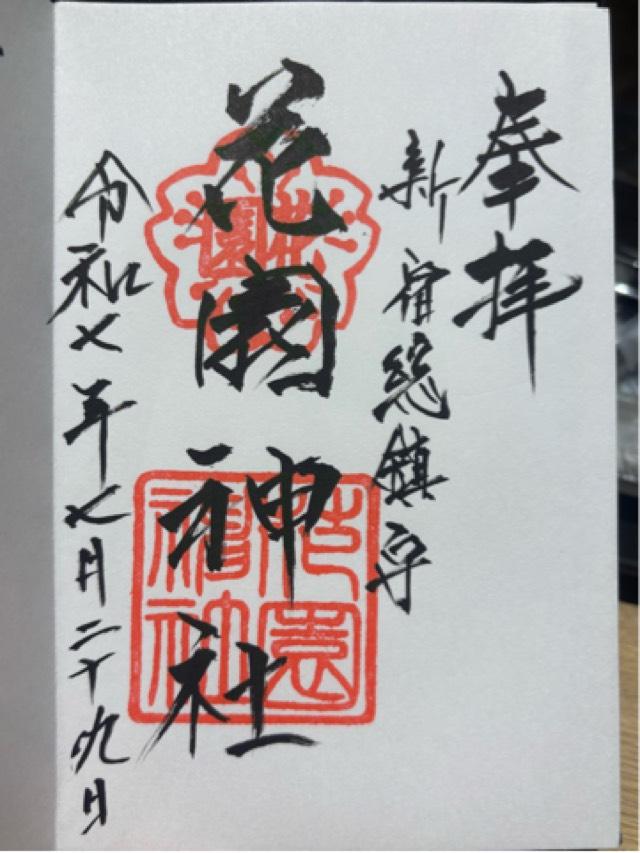 奉拝
新宿総鎮守
花園神社
令和七年七月二十九日
花園
花園神社